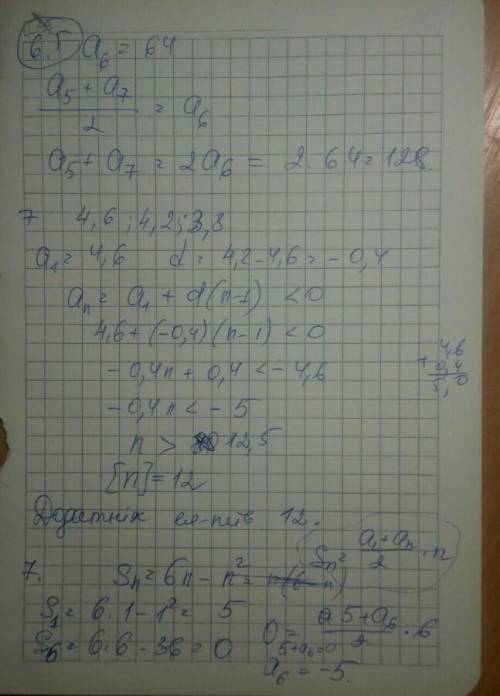 6. a₆ = 64
(a₅ + a₇)/2 = a₆
a₅ + a₇ = 2a₆ = 2·64 = 128.
7 4,6 ; 4,2 ; 3,8
a₁ = 4,6 d = 4,2 - 4,6 = - 0,4
aₙ = a₁ + d(n-1) < 0
4,6 + (-0,4)(n-1) < 0
- 0,4n + 0,4 < - 4,6
4,6
+ 0,4
5,0
- 0,4n < - 5
n > 12,5
[n] = 12
Додатніх ел-тів 12.
Sₙ = (a₁ + aₙ)/2 · n
7. Sₙ = 6n - n² = n(6-n)
S₁ = 6·1 - 1² = 5
S₆ = 6·6 - 36 = 0
0 = (5 + a₆)/2 · 6
5 + a₆ = 0
a₆ = -5.